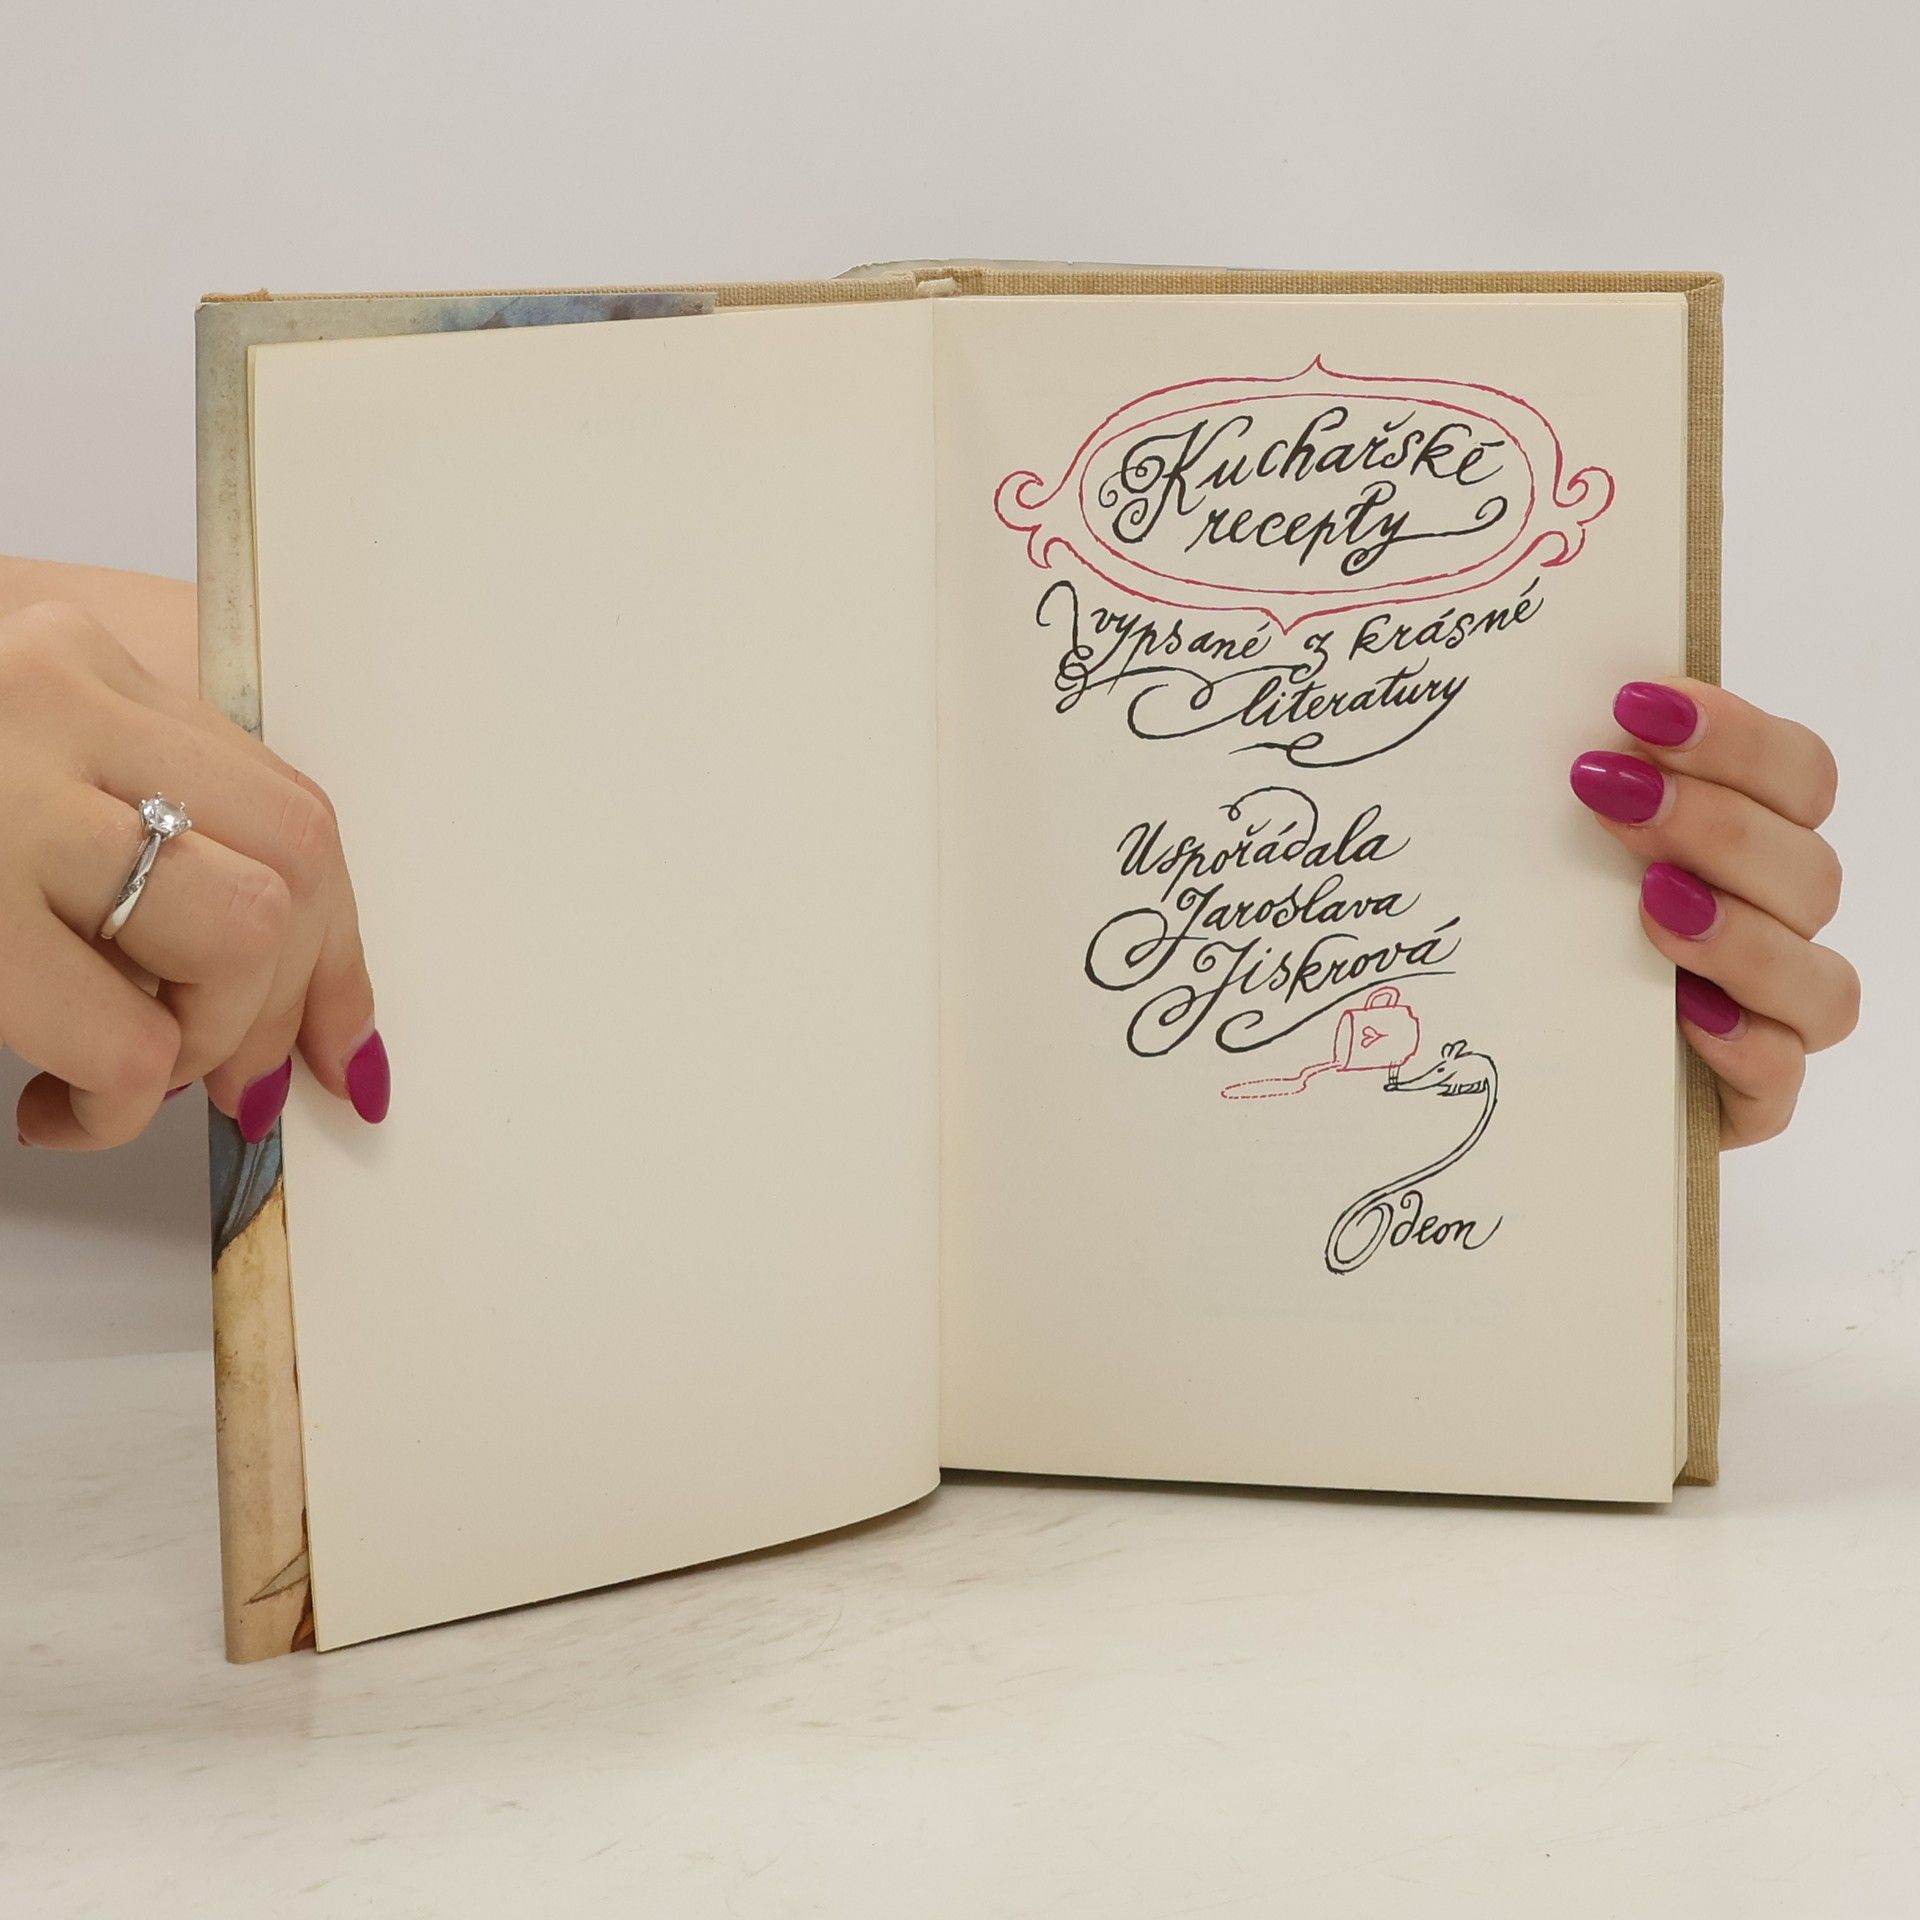 Kuchařské
recepty
vypsané z krásné
literatury
Uspořádala
Jaroslava
Jiskrová
Odeon